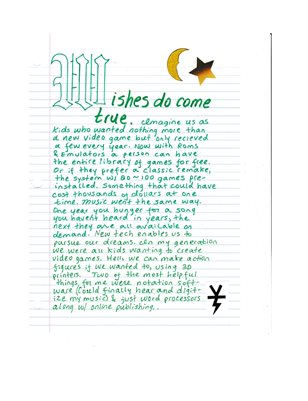 Wishes do come
true. Imagine us as
kids who wanted nothing more than
a new video game but only recieved
a few every year. Now with Roms
& Emulators a person can have
the entire library of games for free.
Or if they prefer a classic remake,
the system w/ 80~100 games pre-
installed. Something that could have
cost thousands of dollars at one
time. Music went the same way.
One year you hunger for a song
you haven't heard in years, the
next they are all available on
demand. New tech enables us to
pursue our dreams. In my generation
we were all kids wanting to create
video games. Hell, we can make action
figures if we wanted to, using 3D
printers. Two of the most helpful
things for me were notation soft-
ware (could finally hear and digit-
ize my music) & just word processors
along w/ online publishing.